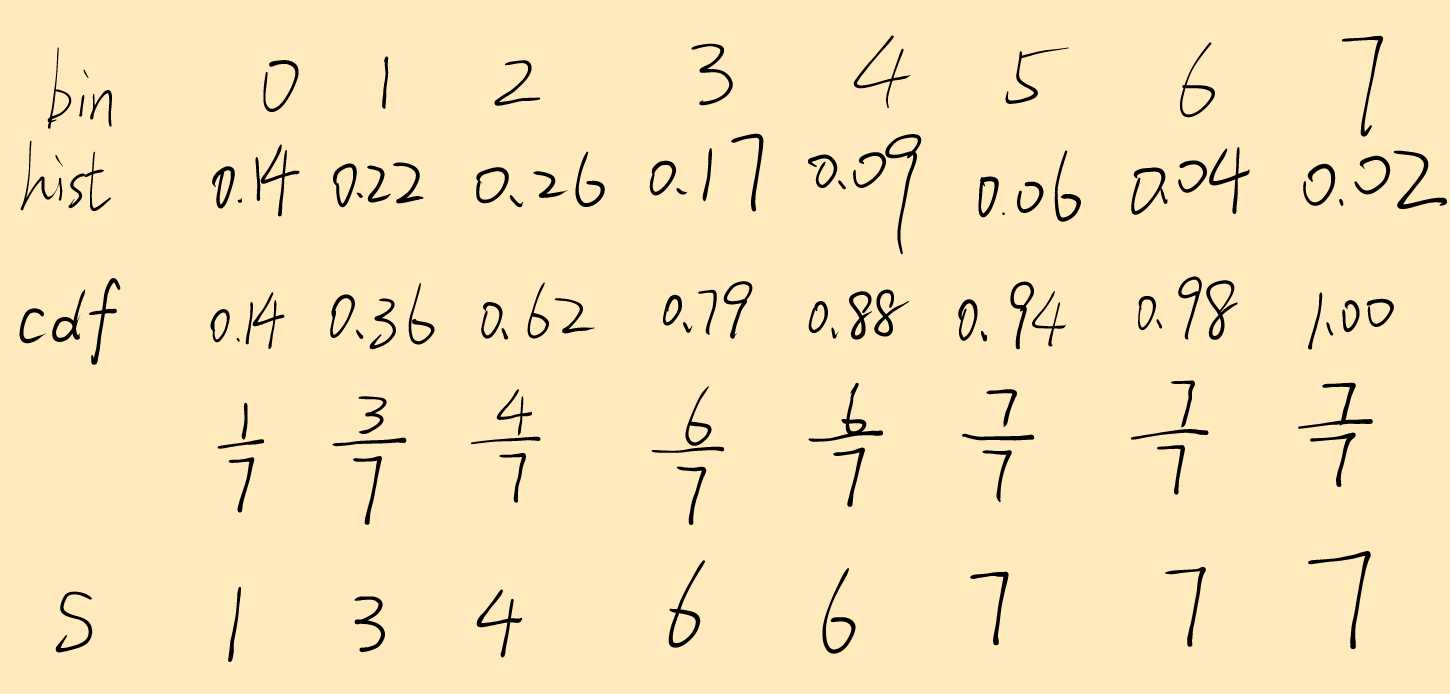 bin 0 1 2 3 4 5 6 7
hist 0.14 0.22 0.26 0.17 0.09 0.06 0.04 0.02
cdf 0.14 0.36 0.62 0.79 0.88 0.94 0.98 1.00
1/7 3/7 4/7 6/7 6/7 7/7 7/7 7/7
S 1 3 4 6 6 7 7 7